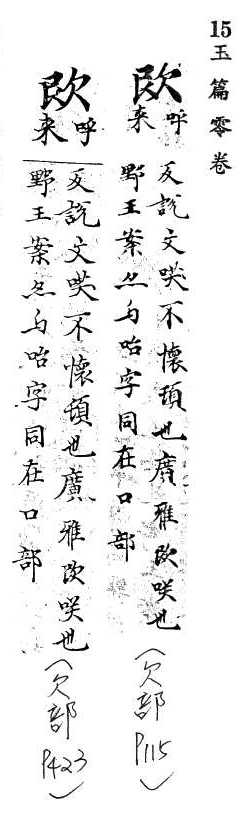 15玉篇零卷
呼
来
反說文咲不懷也廣雅咲也
野王案亦与咍字同在口部
(欠部P115)
呼
来
反說文咲不懷也廣雅咲也
野王案亦与咍字同在口部
(欠部P423)